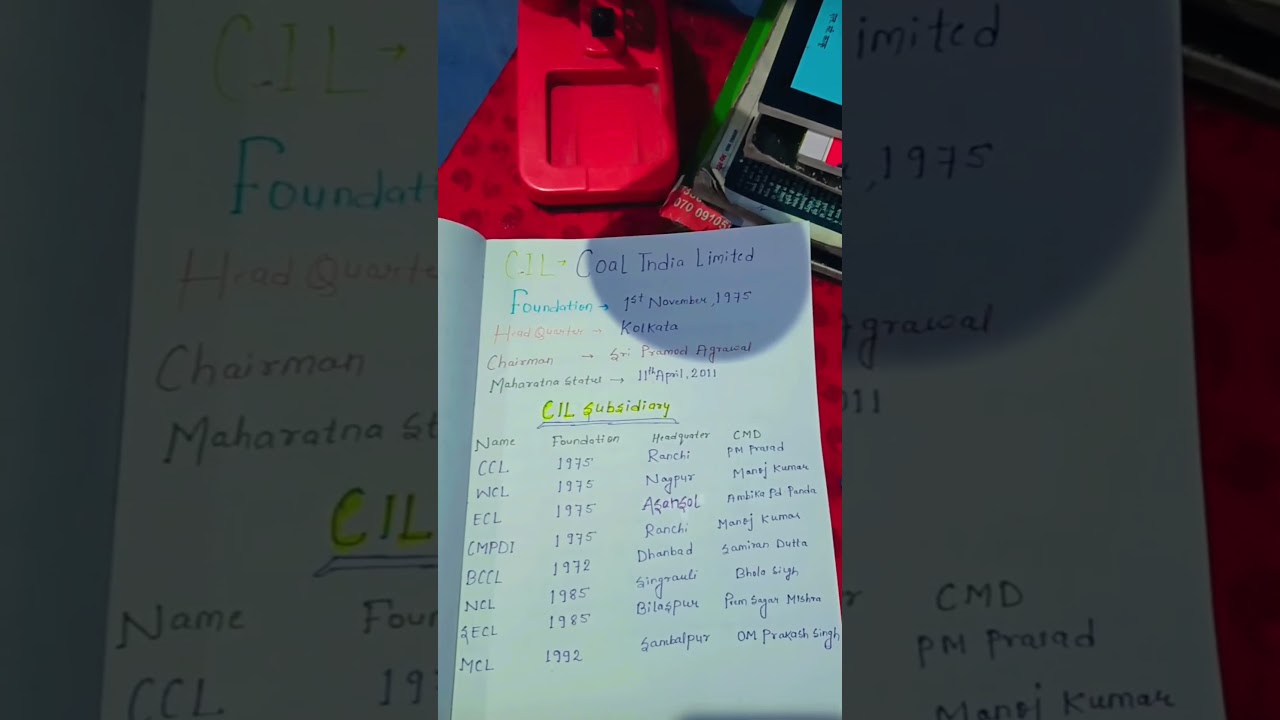 070 09105
CIL → Coal India Limited
Foundation → 1st November, 1975
Head Quarter → Kolkata
Chairman → Sri Pramod Agrawal
Maharatna Status → 11th April, 2011
CIL Subsidiary
Name Foundation Headquater CMD
CCL 1975 Ranchi PM Prasad
WCL 1975 Nagpur Manoj Kumar
ECL 1975 Asansol Ambika Pd Panda
CMPDI 1975 Ranchi Manoj Kumar
BCCL 1972 Dhanbad Samiran Dutta
NCL 1985 Singrauli Bhola Sigh
SECL 1985 Bilaspur Prem Sagar Mishra
MCL 1992 Sambalpur OM Prakash Singh